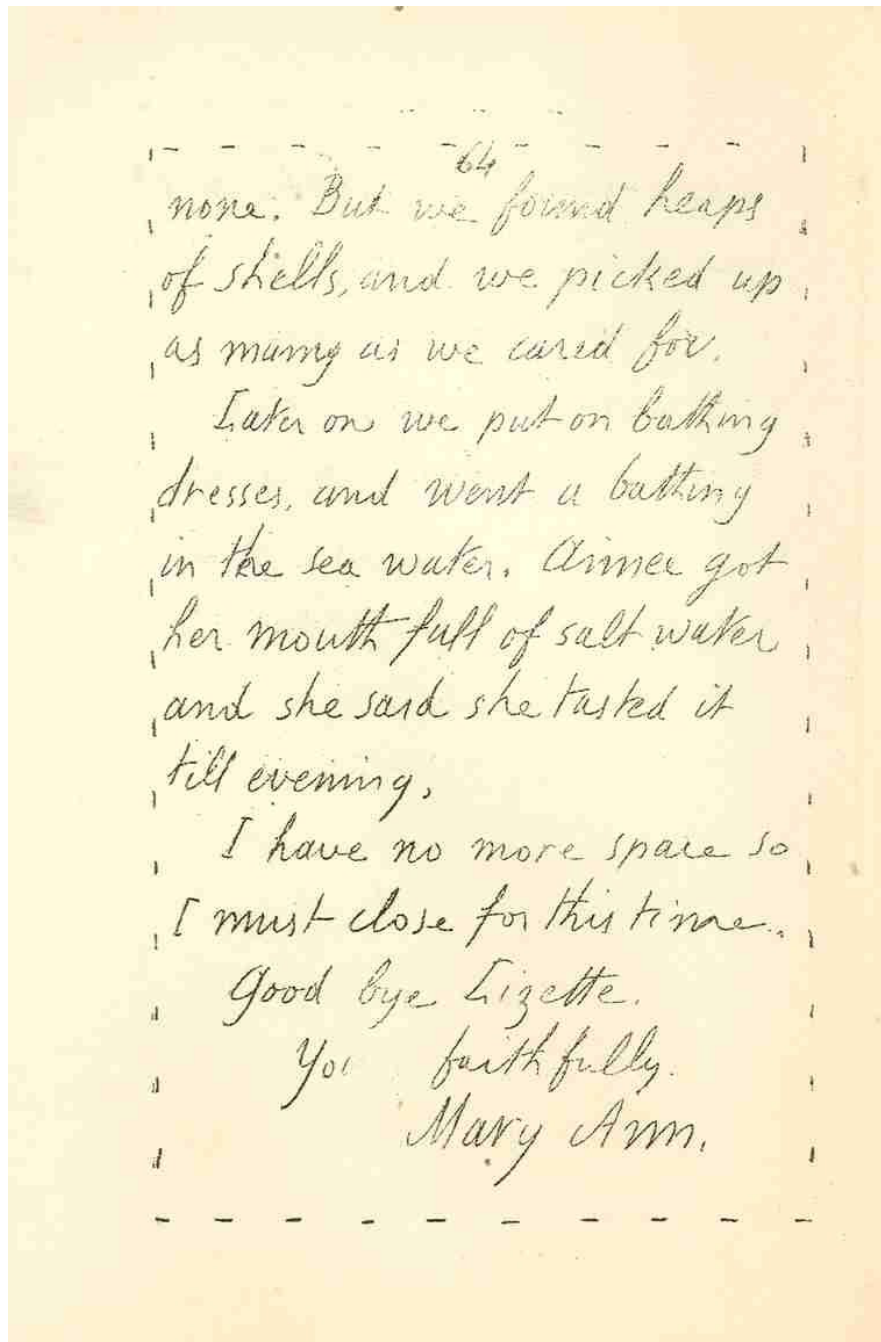 64
none. But we found heaps
of shells, and we picked up
as many as we cared for.
Later on we put on bathing
dresses, and went a bathing
in the sea water. Aimee got
her mouth full of salt water
and she said she tasted it
till evening.
I have no more space so
I must close for this time.
Good bye Lizette.
faithfully.
Mary Ann.